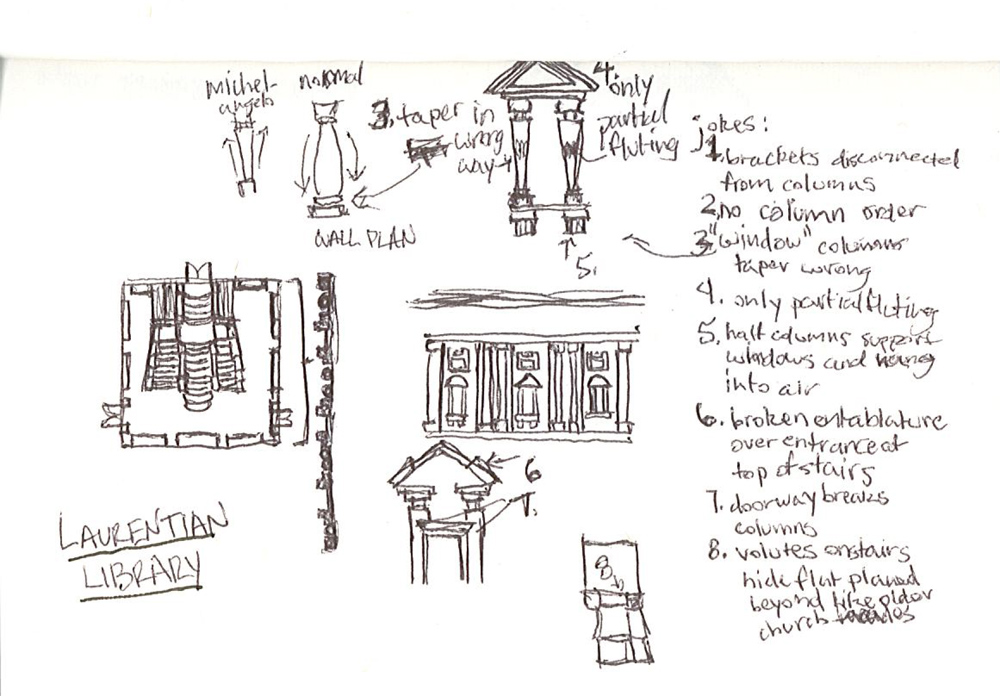 michel-
angelo
normal
3. taper in
wrong
way
4. only
partial
fluting
5.
WALL PLAN
jokes:
1. brackets disconnected
from columns
2. no column order
3. "window" columns
taper wrong
4. only partial fluting
5. half columns support
windows and hang
into air
6. broken entablature
over entrance at
top of stairs
7. doorway breaks
columns
8. volutes on stairs
hide flat planed
beyond like older
church
6
7.
8
LAURENTIAN
LIBRARY